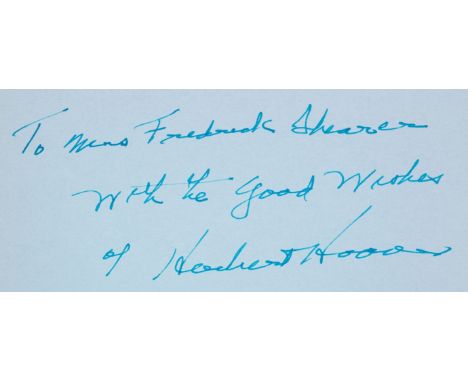 To Mrs Fredrick Shearer
With the Good Wishes
of Herbert Hoover